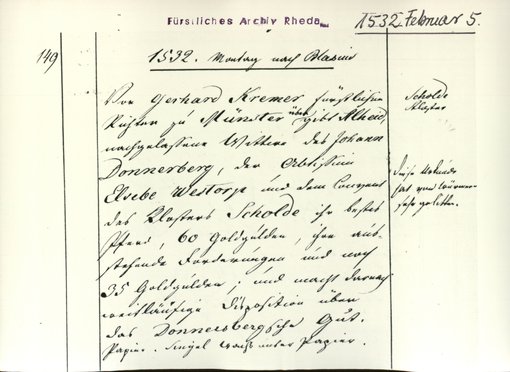 Fürstliches Archiv Rheda
1532. Februar 5.
149
1532. Montag nach Blasius
Vor Gerhard Kremer fürstlichen
Richter zu Münster übergibt Alheid,
nachgelassene Wittwe des Johann
Donnerberg, der Abtissin
Elsebe Westorp und dem Convent
des Klosters Scholde ihr bestes
Pferd, 60 Goldgülden, ihre aus-
stehende Forderungen und noch
35 Goldgülden; und macht darnach
weitläufige Disposition über
das Donnersbergsche Gut.
Papier. Siegel Wachs unter Papier.
Scholde
Kloster
Diese Urkunde
hat von Würmern
sehr gelitten.